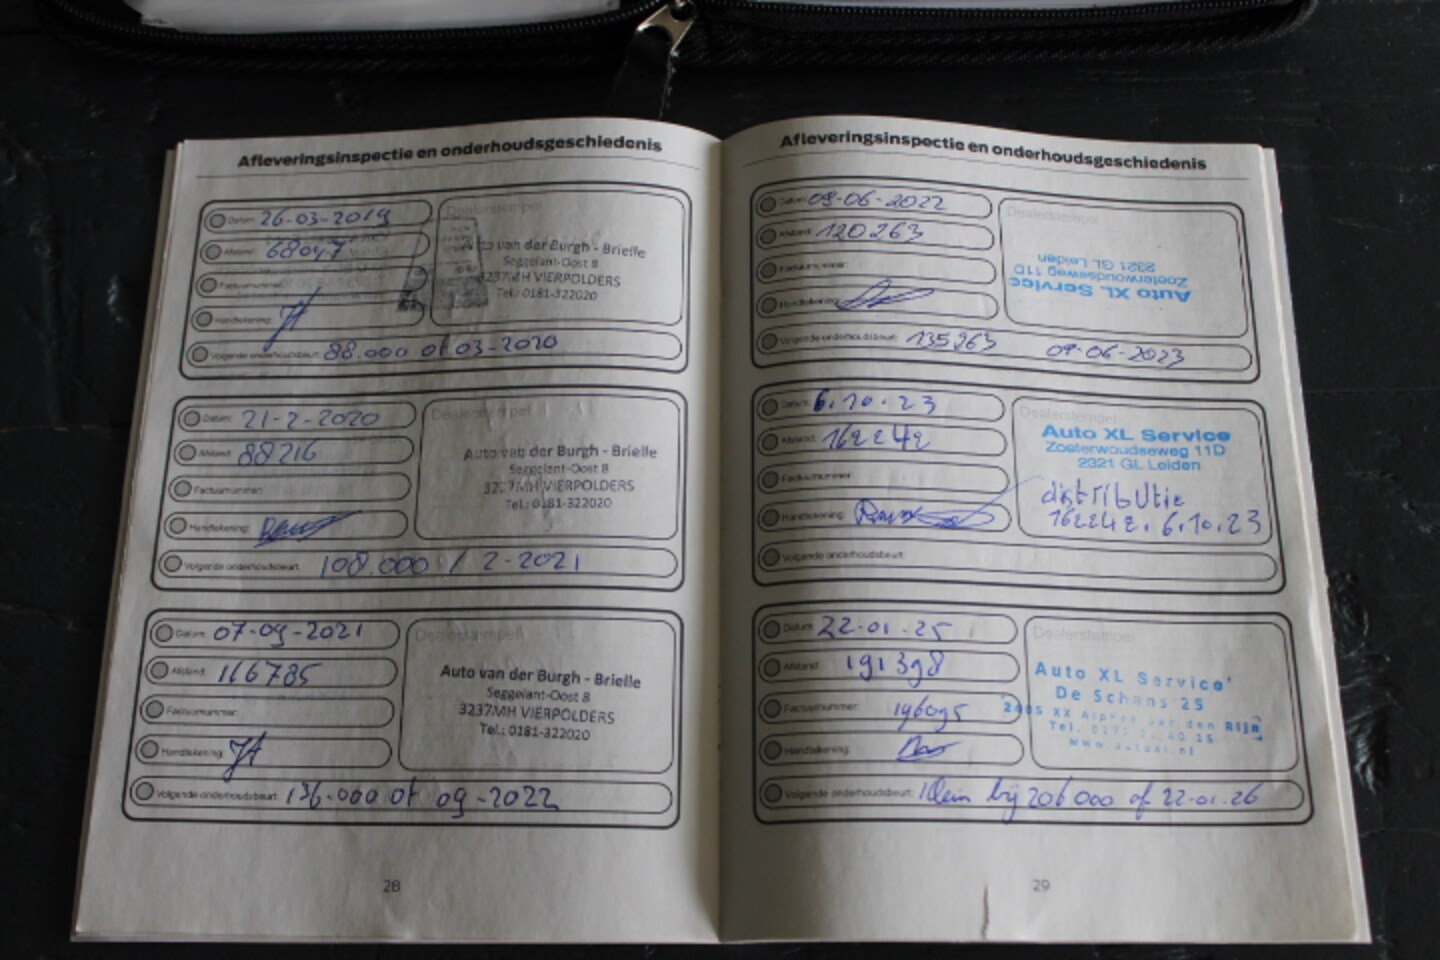 Afleveringsinspectie en onderhoudsgeschiedenis
Datum: 26-03-2019
Afstand: 68047
Factuurnummer:
Handtekening:
Volgende onderhoudsbeurt: 88.000 of 03-2020
Dealerstempel
Auto van der Burgh - Brielle
Seggelant-Oost 8
3237MH VIERPOLDERS
Tel.: 0181-322020
Datum: 21-2-2020
Afstand: 88216
Factuurnummer:
Handtekening:
Volgende onderhoudsbeurt: 108.000 / 2-2021
Dealerstempel
Auto van der Burgh - Brielle
Seggelant-Oost 8
3237MH VIERPOLDERS
Tel.: 0181-322020
Datum: 07-09-2021
Afstand: 116785
Factuurnummer:
Handtekening:
Volgende onderhoudsbeurt: 136.000 of 09-2022
Dealerstempel
Auto van der Burgh - Brielle
Seggelant-Oost 8
3237MH VIERPOLDERS
Tel.: 0181-322020
28
Afleveringsinspectie en onderhoudsgeschiedenis
Datum: 09-06-2022
Afstand: 120263
Factuurnummer:
Handtekening:
Volgende onderhoudsbeurt: 135263 09-06-2023
Dealerstempel
Auto XL Service
Zoeterwoudseweg 11D
2321 GL Leiden
Datum: 6.10.23
Afstand: 162242
Factuurnummer:
Handtekening:
Volgende onderhoudsbeurt:
Dealerstempel
Auto XL Service
Zoeterwoudseweg 11D
2321 GL Leiden
distributie
162242. 6.10.23
Datum: 22-01-25
Afstand: 191398
Factuurnummer: 196095
Handtekening:
Volgende onderhoudsbeurt: Klein bij 206000 of 22-01-26
Dealerstempel
Auto XL Service
De Schans 25
2405 XX Alphen aan den Rijn
www.autoxl.nl
29